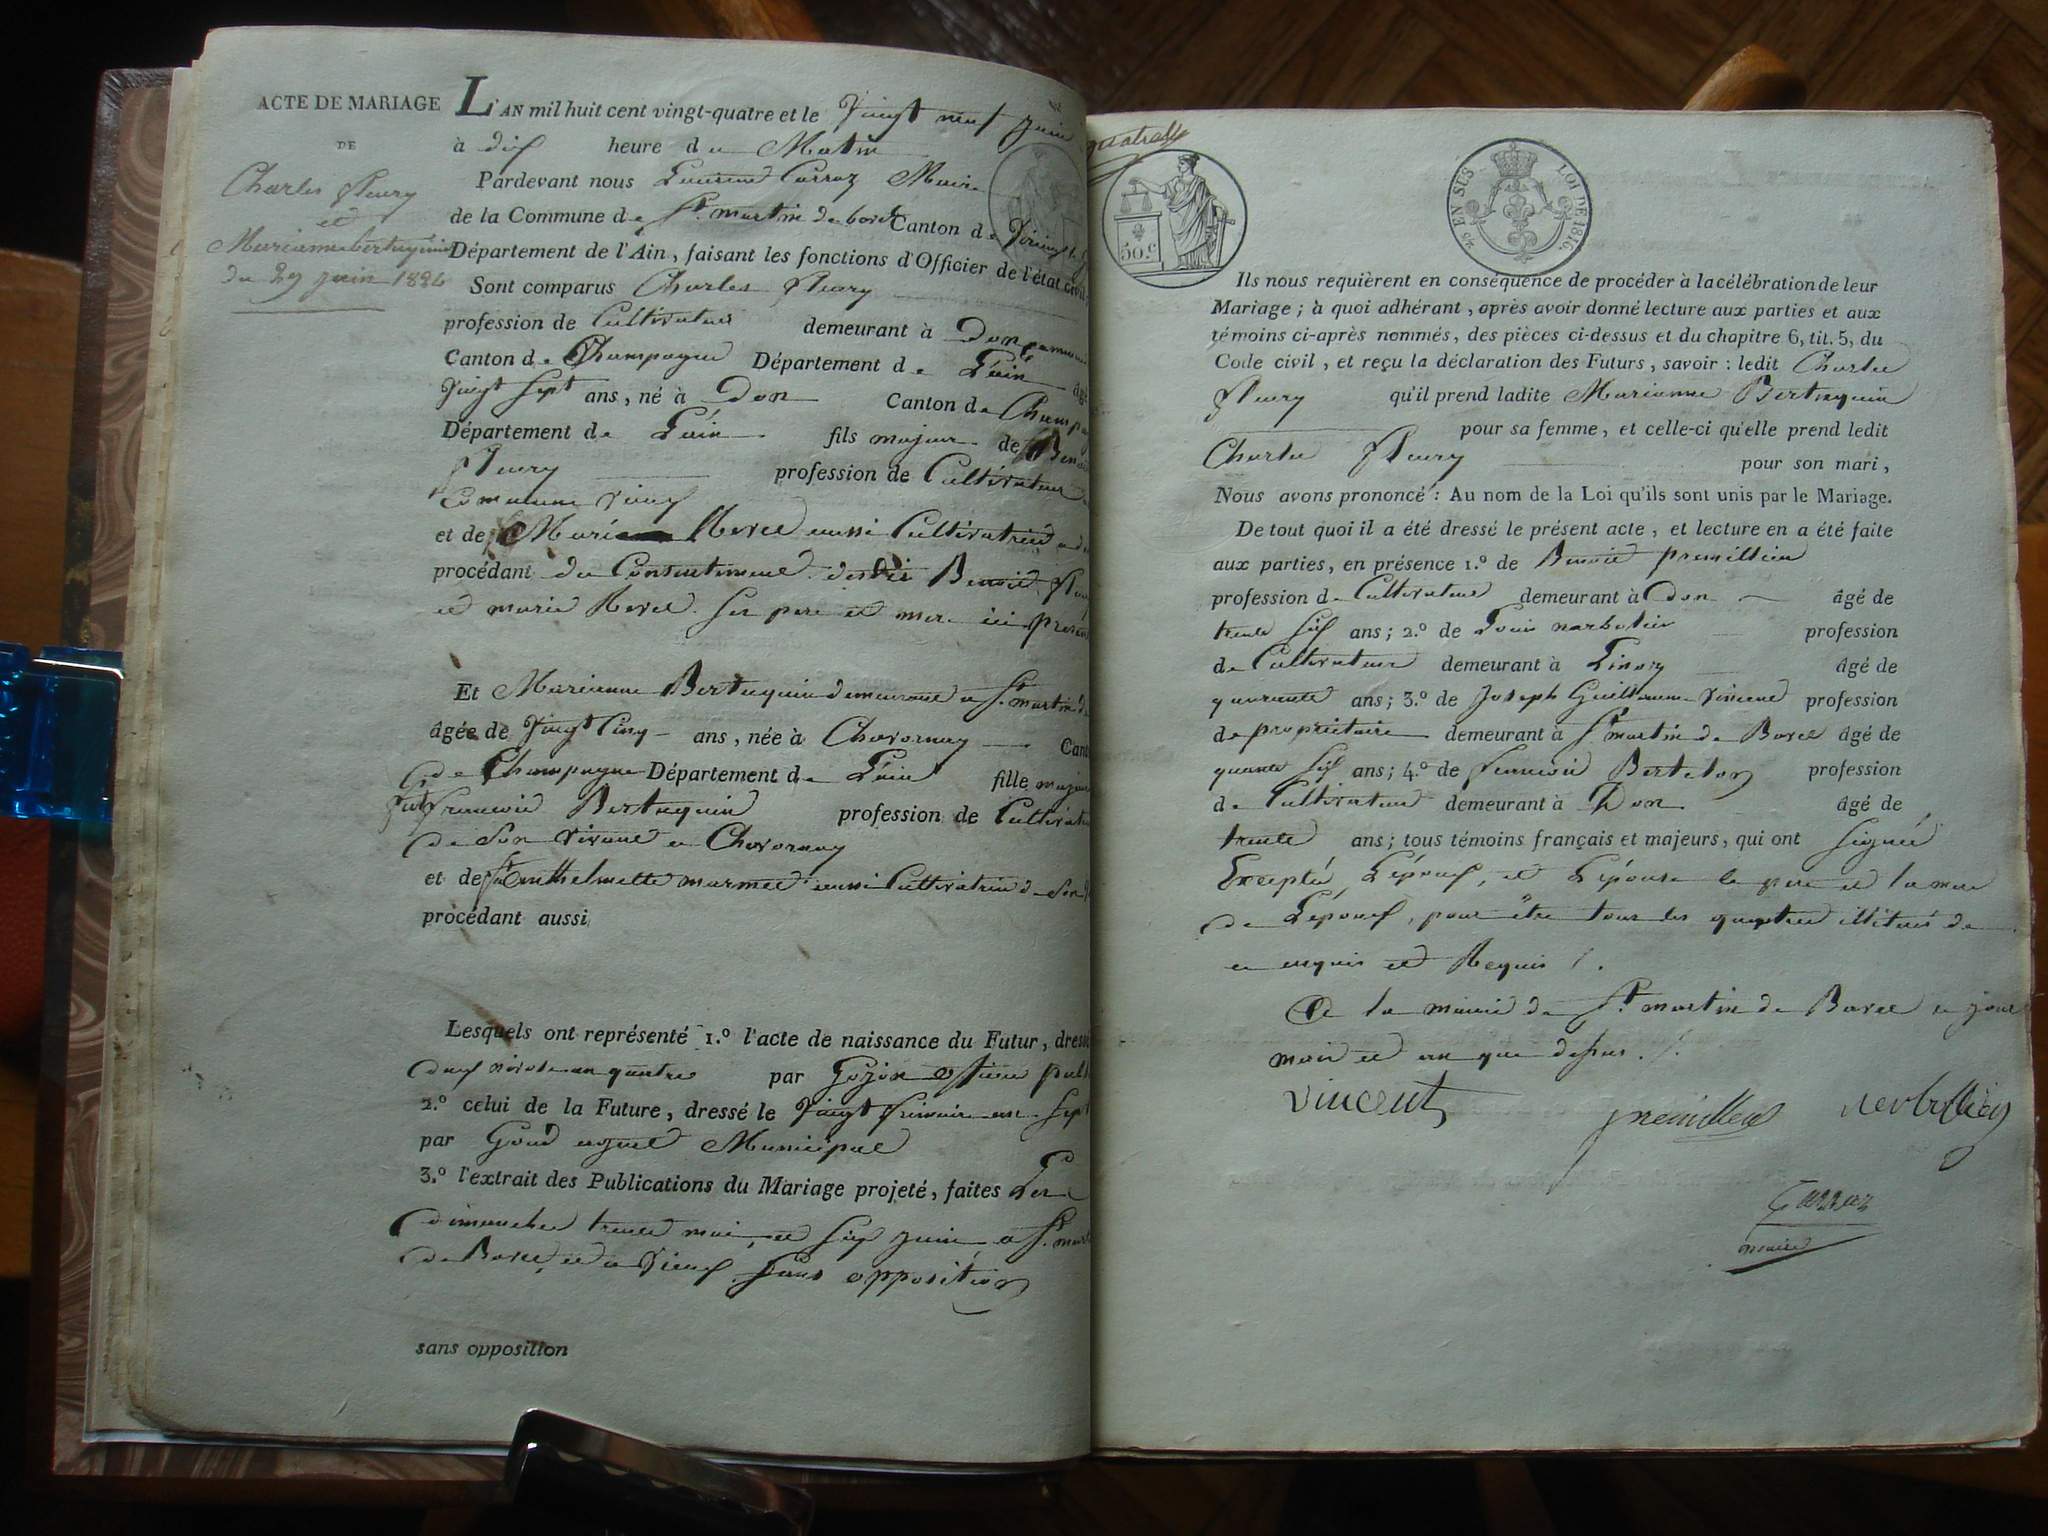 ACTE DE MARIAGE
DE
Charles fleury
et
Marianne bertuquin
du 29 juin 1824
L'AN mil huit cent vingt-quatre et le Vingt neuf juin
à dix heure du Matin
Pardevant nous Carraz Maire
de la Commune de St. martin de bavel Canton de
Département de l'Ain, faisant les fonctions d'Officier de l'état civil
Sont comparus Charles fleury
profession de Cultivateur demeurant à Don
Canton de Champagne Département de L'ain
Vingt sept ans, né à Don Canton de Champ
Département de L'ain fils majeur de Benoit
fleury profession de Cultivateur
Commune Vieuf
et de Marie Revel aussi Cultivatrice
procédant du Consentement desdits Benoit fleury
et marie Revel ses pere et mere ici présents
Et Marianne Bertuquin demeurant a St. martin de
âgée de Vingt Cinq ans, née à Chavornay Cant
de Champagne Département de L'ain fille majeure
feu francois Bertuquin profession de Cultivateur
de Son vivant a Chavornay
et de marmet aussi Cultivatrice de Son
procédant aussi
Lesquels ont représenté 1.º l'acte de naissance du Futur, dressé
neuf nivose an quatre par Gojon officier publ
2.º celui de la Future, dressé le Vingt frimaire an Sept
par agent Municipal
3.º l'extrait des Publications du Mariage projeté, faites Les
dimanches trente mai et Six juin a St. mart
de Bavel et a Vieuf Sans opposition
sans opposition
50.c
45 EN SUS LOI DE 1816.
Ils nous requièrent en conséquence de procéder à la célébration de leur
Mariage; à quoi adhérant, après avoir donné lecture aux parties et aux
témoins ci-après nommés, des pièces ci-dessus et du chapitre 6, tit. 5, du
Code civil, et reçu la déclaration des Futurs, savoir : ledit Charles
fleury qu'il prend ladite Marianne Bertuquin
pour sa femme, et celle-ci qu'elle prend ledit
Charles fleury pour son mari,
Nous avons prononcé : Au nom de la Loi qu'ils sont unis par le Mariage.
De tout quoi il a été dressé le présent acte, et lecture en a été faite
aux parties, en présence 1.º de Benoit premillieu
profession de Cultivateur demeurant à Don âgé de
trente Six ans; 2.º de Louis narbotier profession
de Cultivateur demeurant à Linary âgé de
quarante ans; 3.º de Joseph Guillaume Vincent profession
de propriétaire demeurant à St martin de Bavel âgé de
Six ans; 4.º de francois Bertelon profession
de Cultivateur demeurant à Don âgé de
trente ans; tous témoins français et majeurs, qui ont Signé
Excepté L'époux, et L'épouse le pere et la mere
de L'époux, pour être tous les quatre illitérés de
ce enquis et Requis /.
A la mairie de St. martin de Bavel ce jour
mois et an que dessus. /.
vincent
premillieu
Carraz
maire